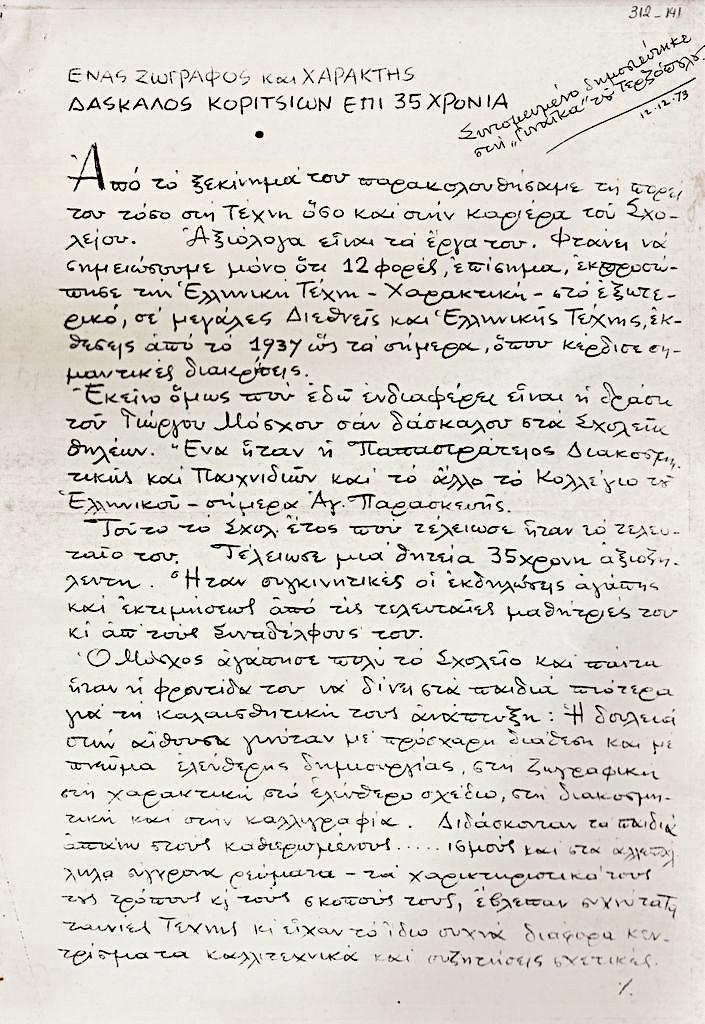 312-141
ΕΝΑΣ ΖΩΓΡΑΦΟΣ και ΧΑΡΑΚΤΗΣ
ΔΑΣΚΑΛΟΣ ΚΟΡΙΤΣΙΩΝ ΕΠΙ 35 ΧΡΟΝΙΑ
Συντομευμένο δημοσιεύτηκε
στη „Γυναίκα" τοῦ Τερζόπουλου
12.12.73
Ἀπό τό ξεκίνημά του παρακολουθήσαμε τή πορεί
του τόσο στή Τέχνη ὅσο και στήν καριέρα τοῦ Σχο-
λείου. Ἀξιόλογα εἶναι τά ἔργα του. Φτάνει νά
σημειώσουμε μόνο ὅτι 12 φορές, ἐπίσημα, ἐκπροσώ-
πησε τήν Ἑλληνική Τέχνη - Χαρακτική - στό ἐξωτε-
ρικό, σέ μεγάλες Διεθνεῖς και Ἑλληνικῆς Τέχνης, ἐκ-
θέσεις ἀπό τό 1937 ὥς τά σήμερα, ὅπου κέρδισε ση-
μαντικές διακρίσεις.
Ἐκεῖνο ὅμως πού ἐδῶ ἐνδιαφέρει εἶναι ἡ δράση
τοῦ Γιώργου Μόσχου σάν δάσκαλου στά Σχολεῖα
θηλέων. Ἕνα ἦταν ἡ Παπαστράτειος Διακοσμη-
τικῆς και Παιχνιδιῶν και τό ἄλλο τό Κολλέγιο τοῦ
Ἑλληνικοῦ - σήμερα Ἁγ. Παρασκευῆς.
Τοῦτο τό Σχολ. ἔτος πού τέλειωσε ἦταν τό τελευ-
ταῖο του. Τέλειωσε μιά θητεία 35χρονη ἀξιοζή-
λευτη. Ἦταν συγκινητικές οἱ ἐκδηλώσεις ἀγάπης
και ἐκτιμήσεως ἀπό τίς τελευταῖες μαθήτριές του
κι ἀπ' τούς Συναδέλφους του.
Ὁ Μόσχος ἀγάπησε πολύ τό Σχολεῖο και πάντα
ἦταν ἡ φροντίδα του νά δίνει στά παιδιά πιότερα
γιά τή καλαισθητική τους ἀνάπτυξη: Ἡ δουλειά
στήν αἴθουσα γινόταν μέ πρόσχαρη διάθεση και μέ
πνεῦμα ἐλεύθερης δημιουργίας, στή ζωγραφική
στή χαρακτική στό ἐλεύθερο σχέδιο, στή διακοσμη-
τική και στήν καλλιγραφία. Διδάσκονταν τά παιδιά
ἀπάνω στούς καθιερωμένους ..... ισμούς και στά
σύγχρονα ρεύματα - τά χαρακτηριστικά τους
τούς τρόπους κι τούς σκοπούς τους, ἔβλεπαν συχνότατα
ταινίες Τέχνης κι εἶχαν τό ἴδιο συχνά διάφορα κεν-
τρίσματα καλλιτεχνικά και συζητήσεις σχετικές.
%